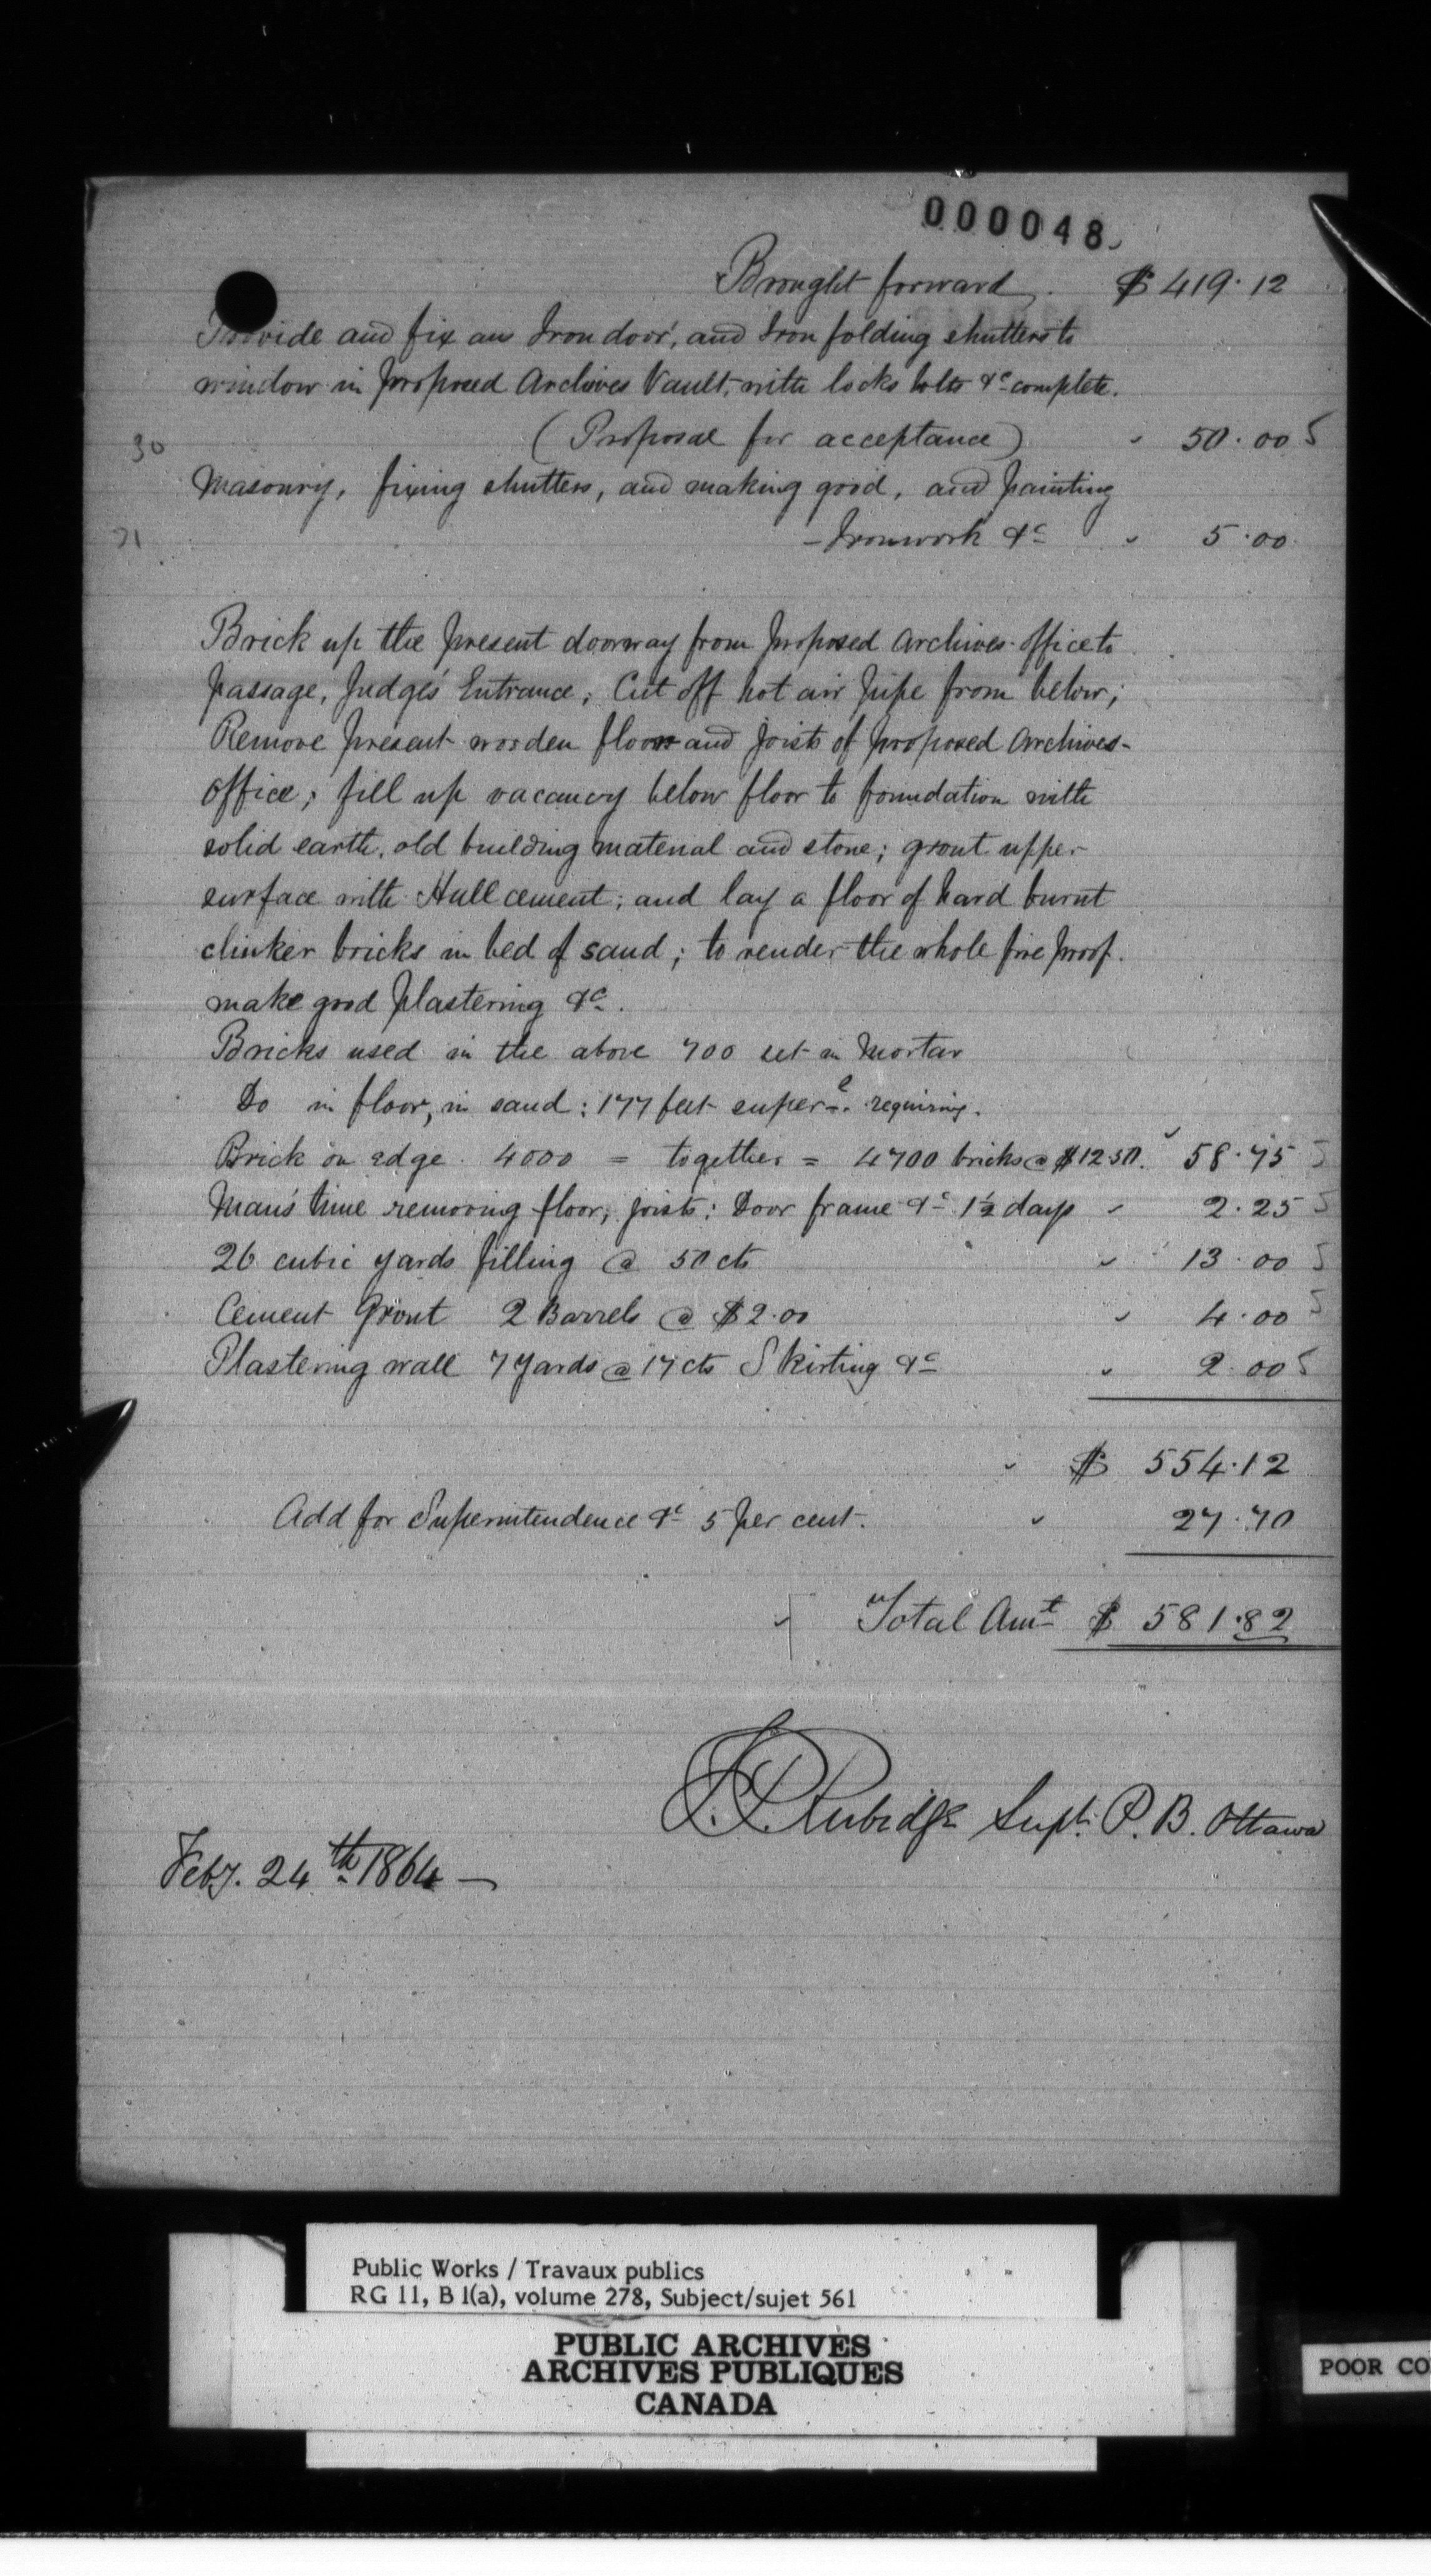 000048
Brought forward. $ 419.12
Provide and fix an Iron door, and Iron folding shutters to
window in proposed Archives Vault, with locks bolts &c complete.
(Proposal for acceptance) " 50.00
30
Masonry, fixing shutters, and making good, and painting
Ironwork &c " 5.00
Brick up the present doorway from proposed Archives-office to
passage, Judges' Entrance; Cut off hot air pipe from below;
Remove present wooden floor and joists of proposed Archives-
office; fill up vacancy below floor to foundation with
solid earth, old building material and stone; grout upper
surface with Hull cement; and lay a floor of hard burnt
clinker bricks in bed of sand; to render the whole fire proof.
make good plastering &c.
Bricks used in the above 700 set in Mortar
Do in floor, in sand: 177 feet superl. requiring.
Brick on edge. 4000 = together = 4700 bricks @ $12.50. " 58.75
Man's time removing floor, joists: Door frame &c 1½ days " 2.25
26 cubic yards filling @ 50 cts " 13.00
Cement Grout 2 Barrels @ $2.00 " 4.00
Plastering wall 7 yards @ 17 cts Skirting &c " 2.00
" $ 554.12
Add for Superintendence &c 5 per cent. " 27.70
Total Amt $ 581.82
Rubidge Supt. P. B. Ottawa
Feby. 24th 1864 —
Public Works / Travaux publics
RG 11, B 1(a), volume 278, Subject/sujet 561
PUBLIC ARCHIVES
ARCHIVES PUBLIQUES
CANADA
POOR CO